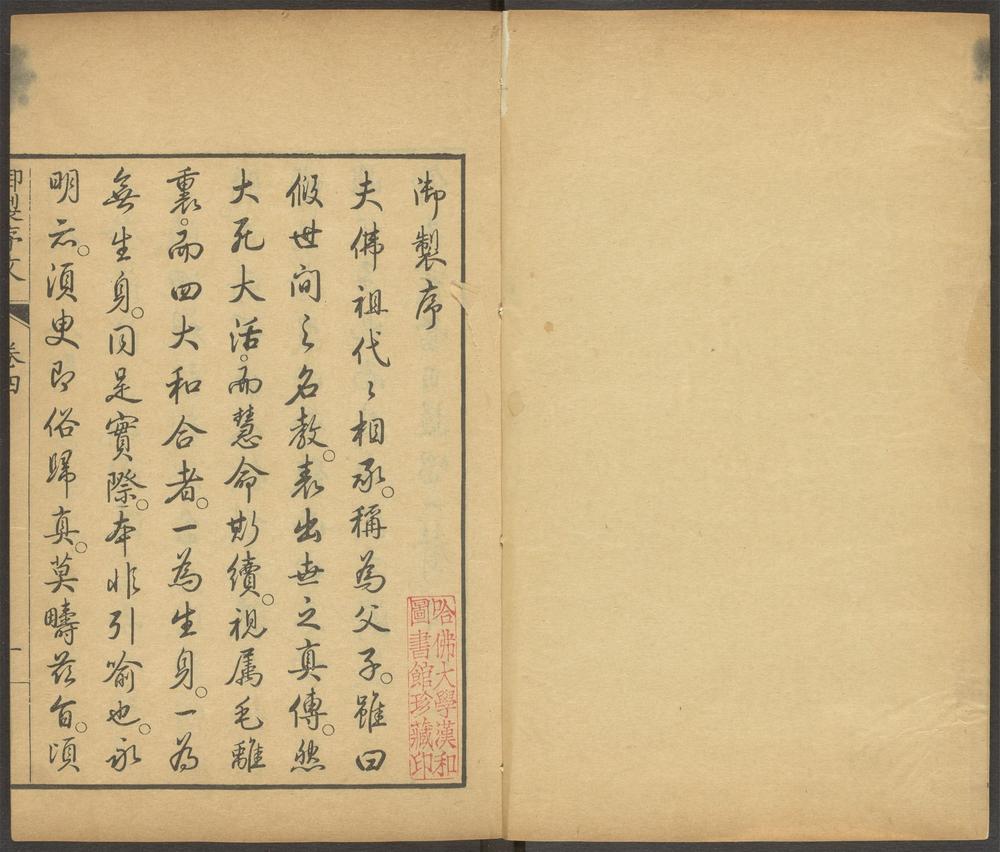 御製序
夫佛祖代〻相承。稱為父子。雖曰
假世間之名教。表出世之真傳。然
大死大活。而慧命斯續。視属毛離
裏。而四大和合者。一為生身。一為
無生身。同是實際。本非引喻也。永
明云。須臾即俗歸真。莫疇茲旨。頃
御製序文 卷四 一
哈佛大學漢和
圖書館珍藏印